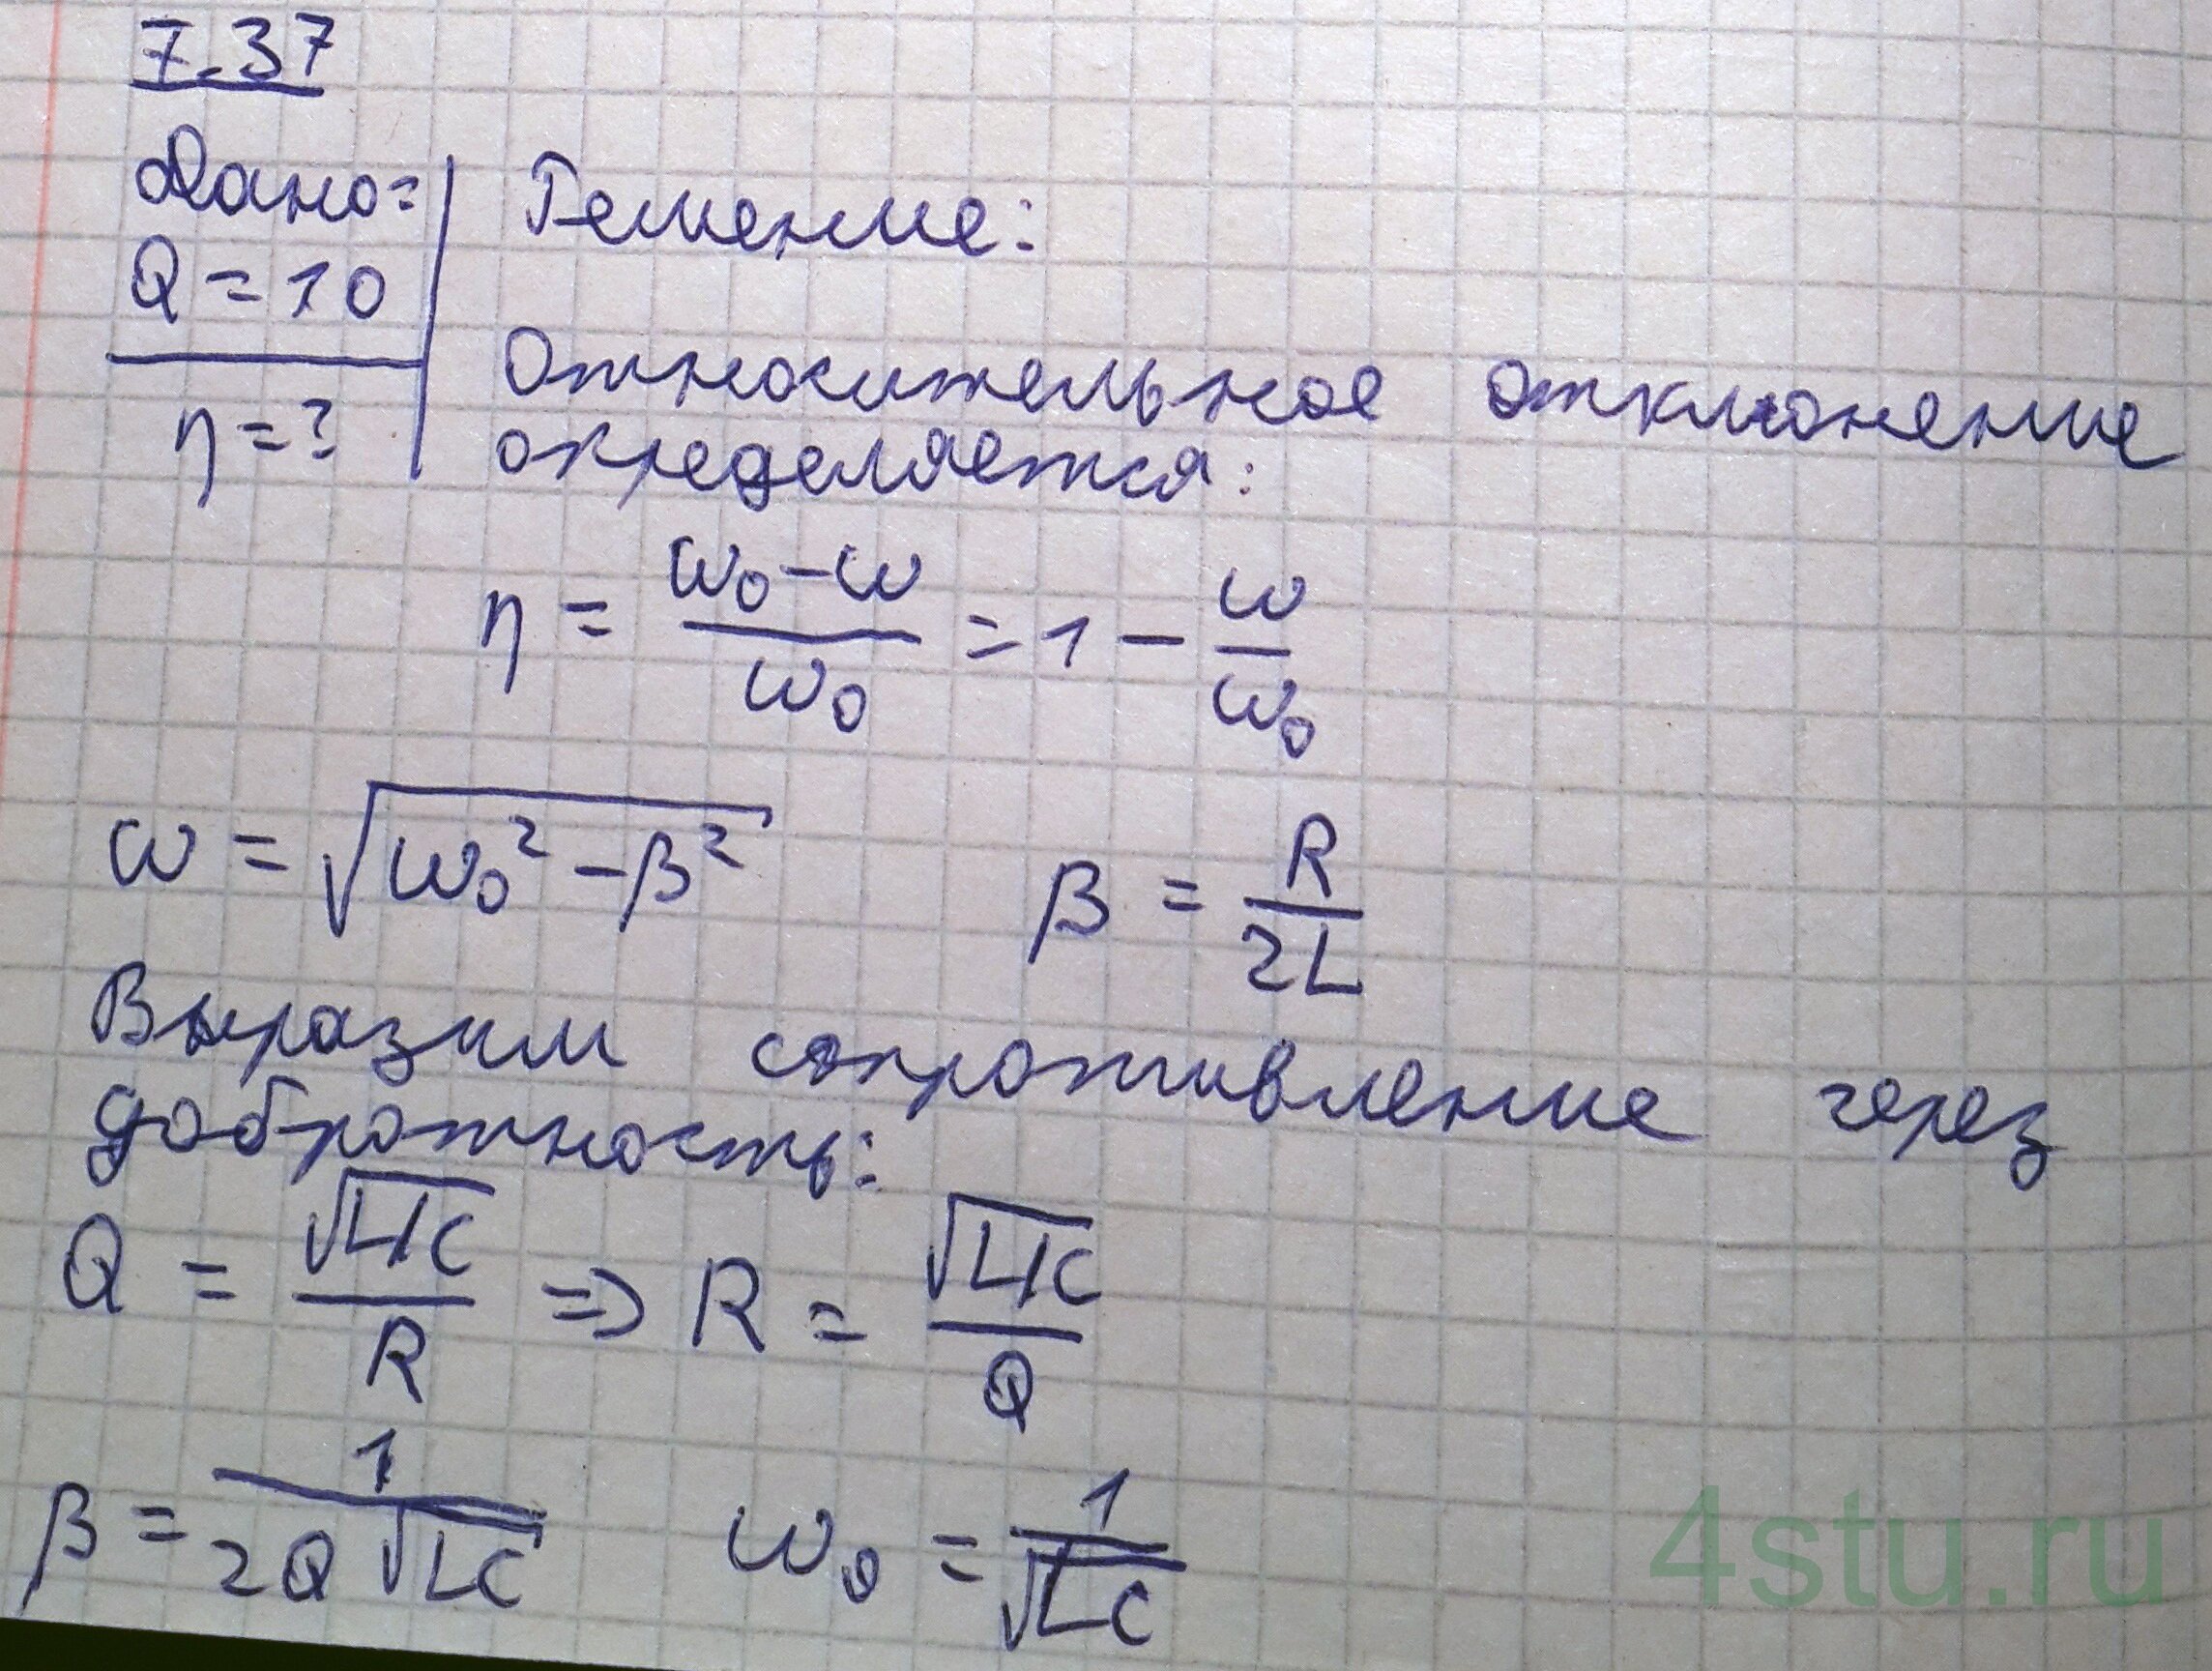 7.37
Дано:
Q = 10
η = ?
Решение:
Относительное отклонение
определяется:
η = (ω₀ - ω)/ω₀ = 1 - ω/ω₀
ω = √(ω₀² - β²)    β = R/2L
Выразим сопротивление через
добротность:
Q = √(L/C)/R => R = √(L/C)/Q
β = 1/(2Q√(LC))    ω₀ = 1/√(LC)
4stu.ru